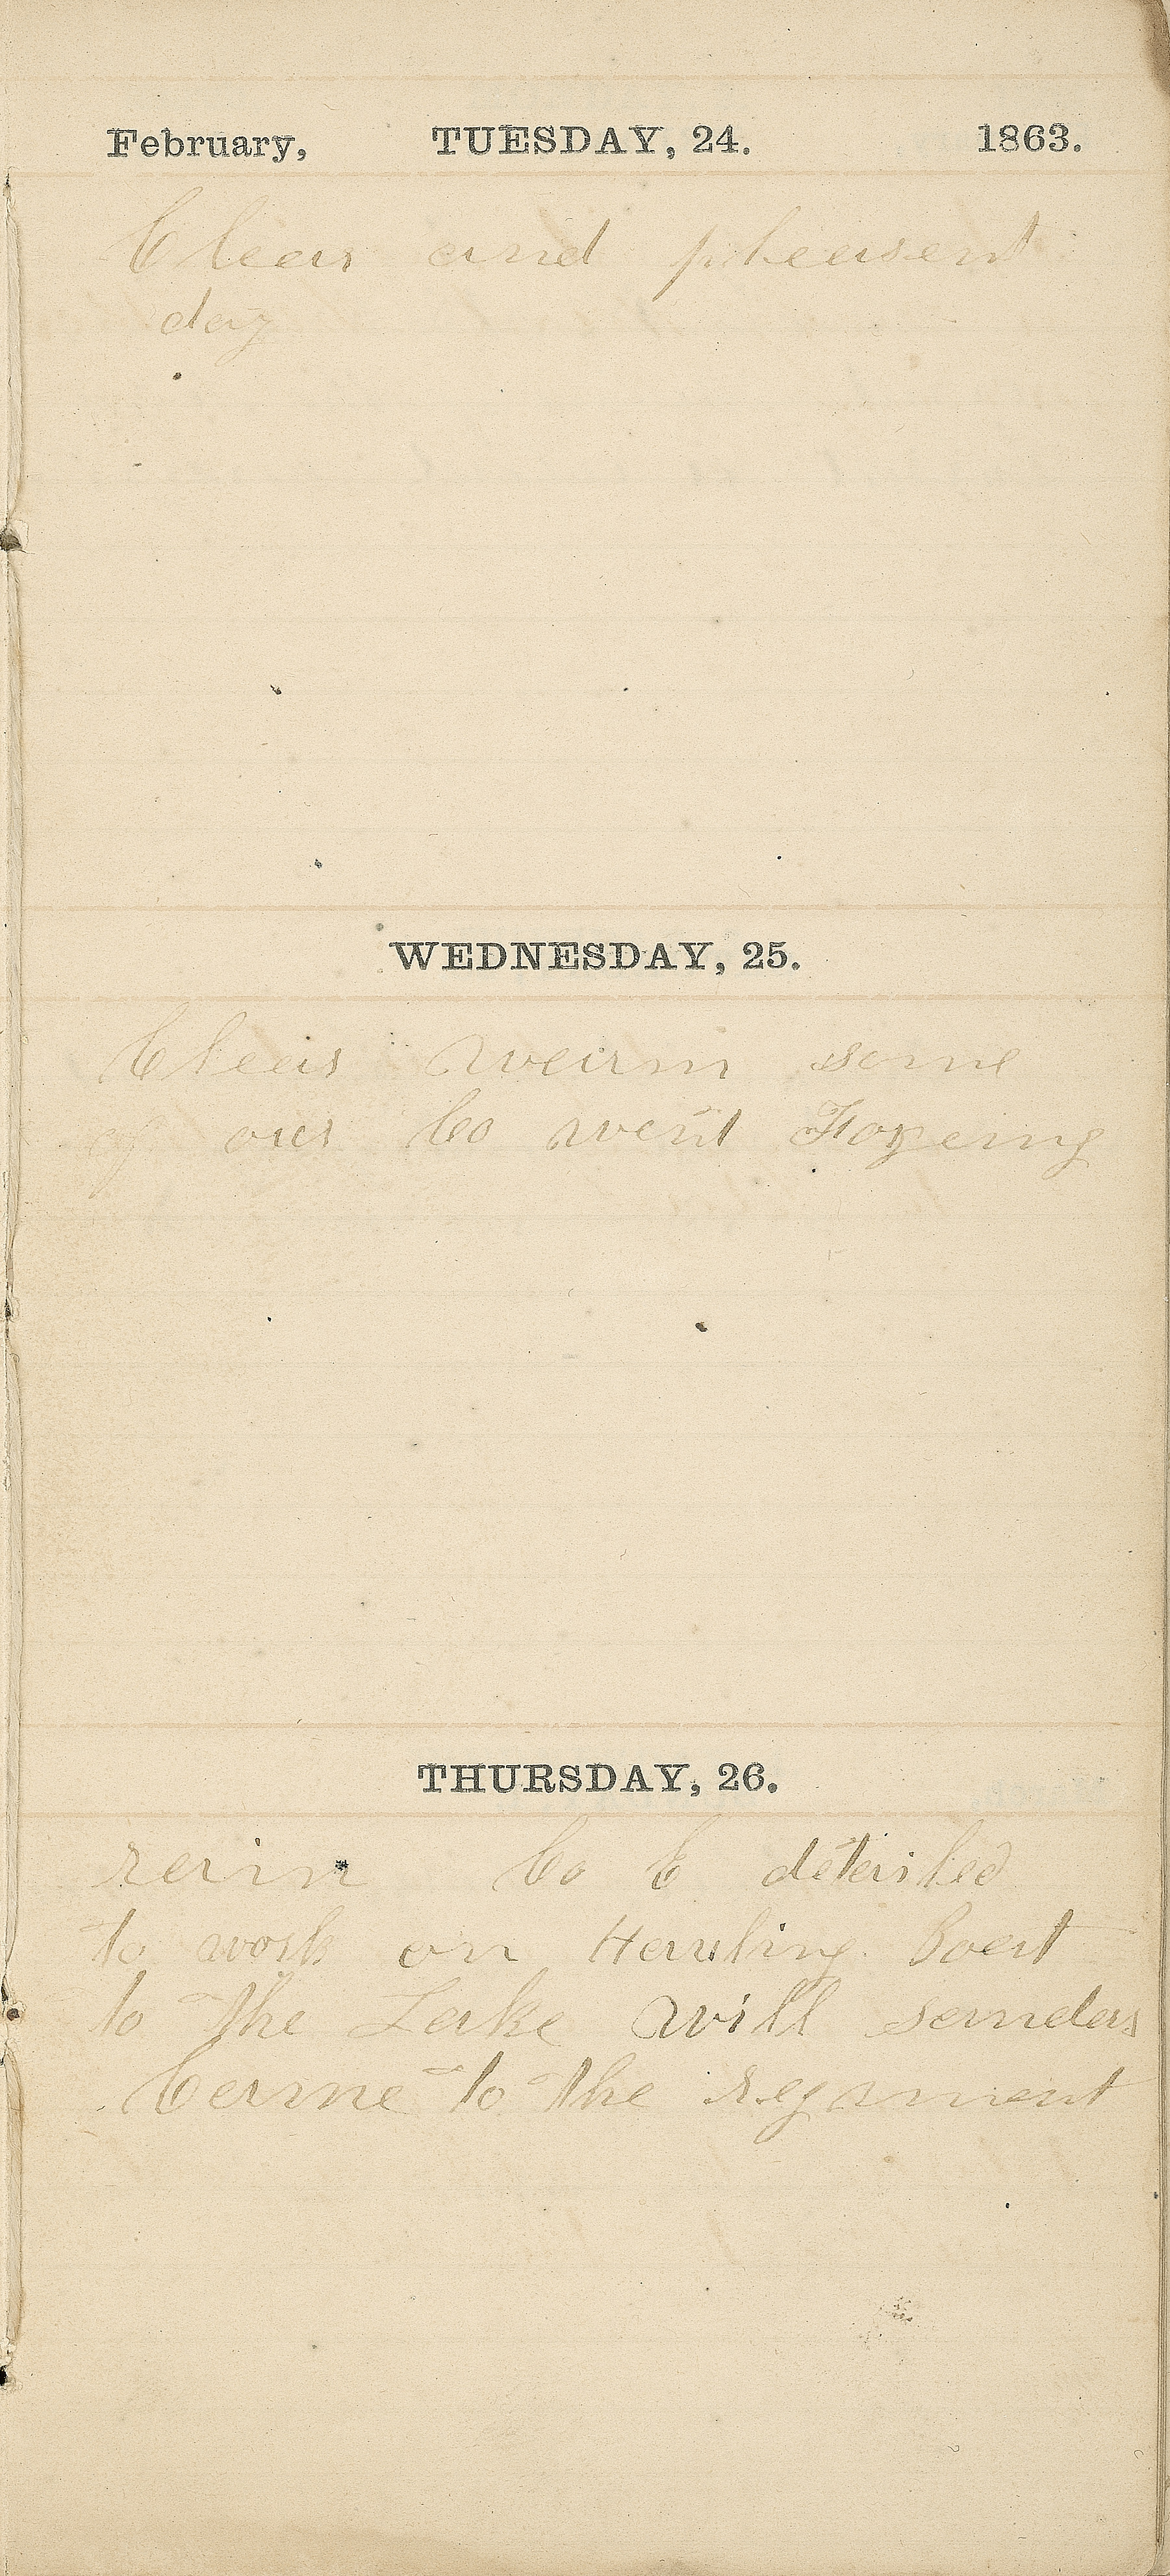 February, TUESDAY, 24. 1863.
Clear and pleasent
day
WEDNESDAY, 25.
Clear warm some
of our Co went Forging
THURSDAY, 26.
rain Co C detailed
to work on Hauling Boat
to the Lake Will sanders
Came to the regment